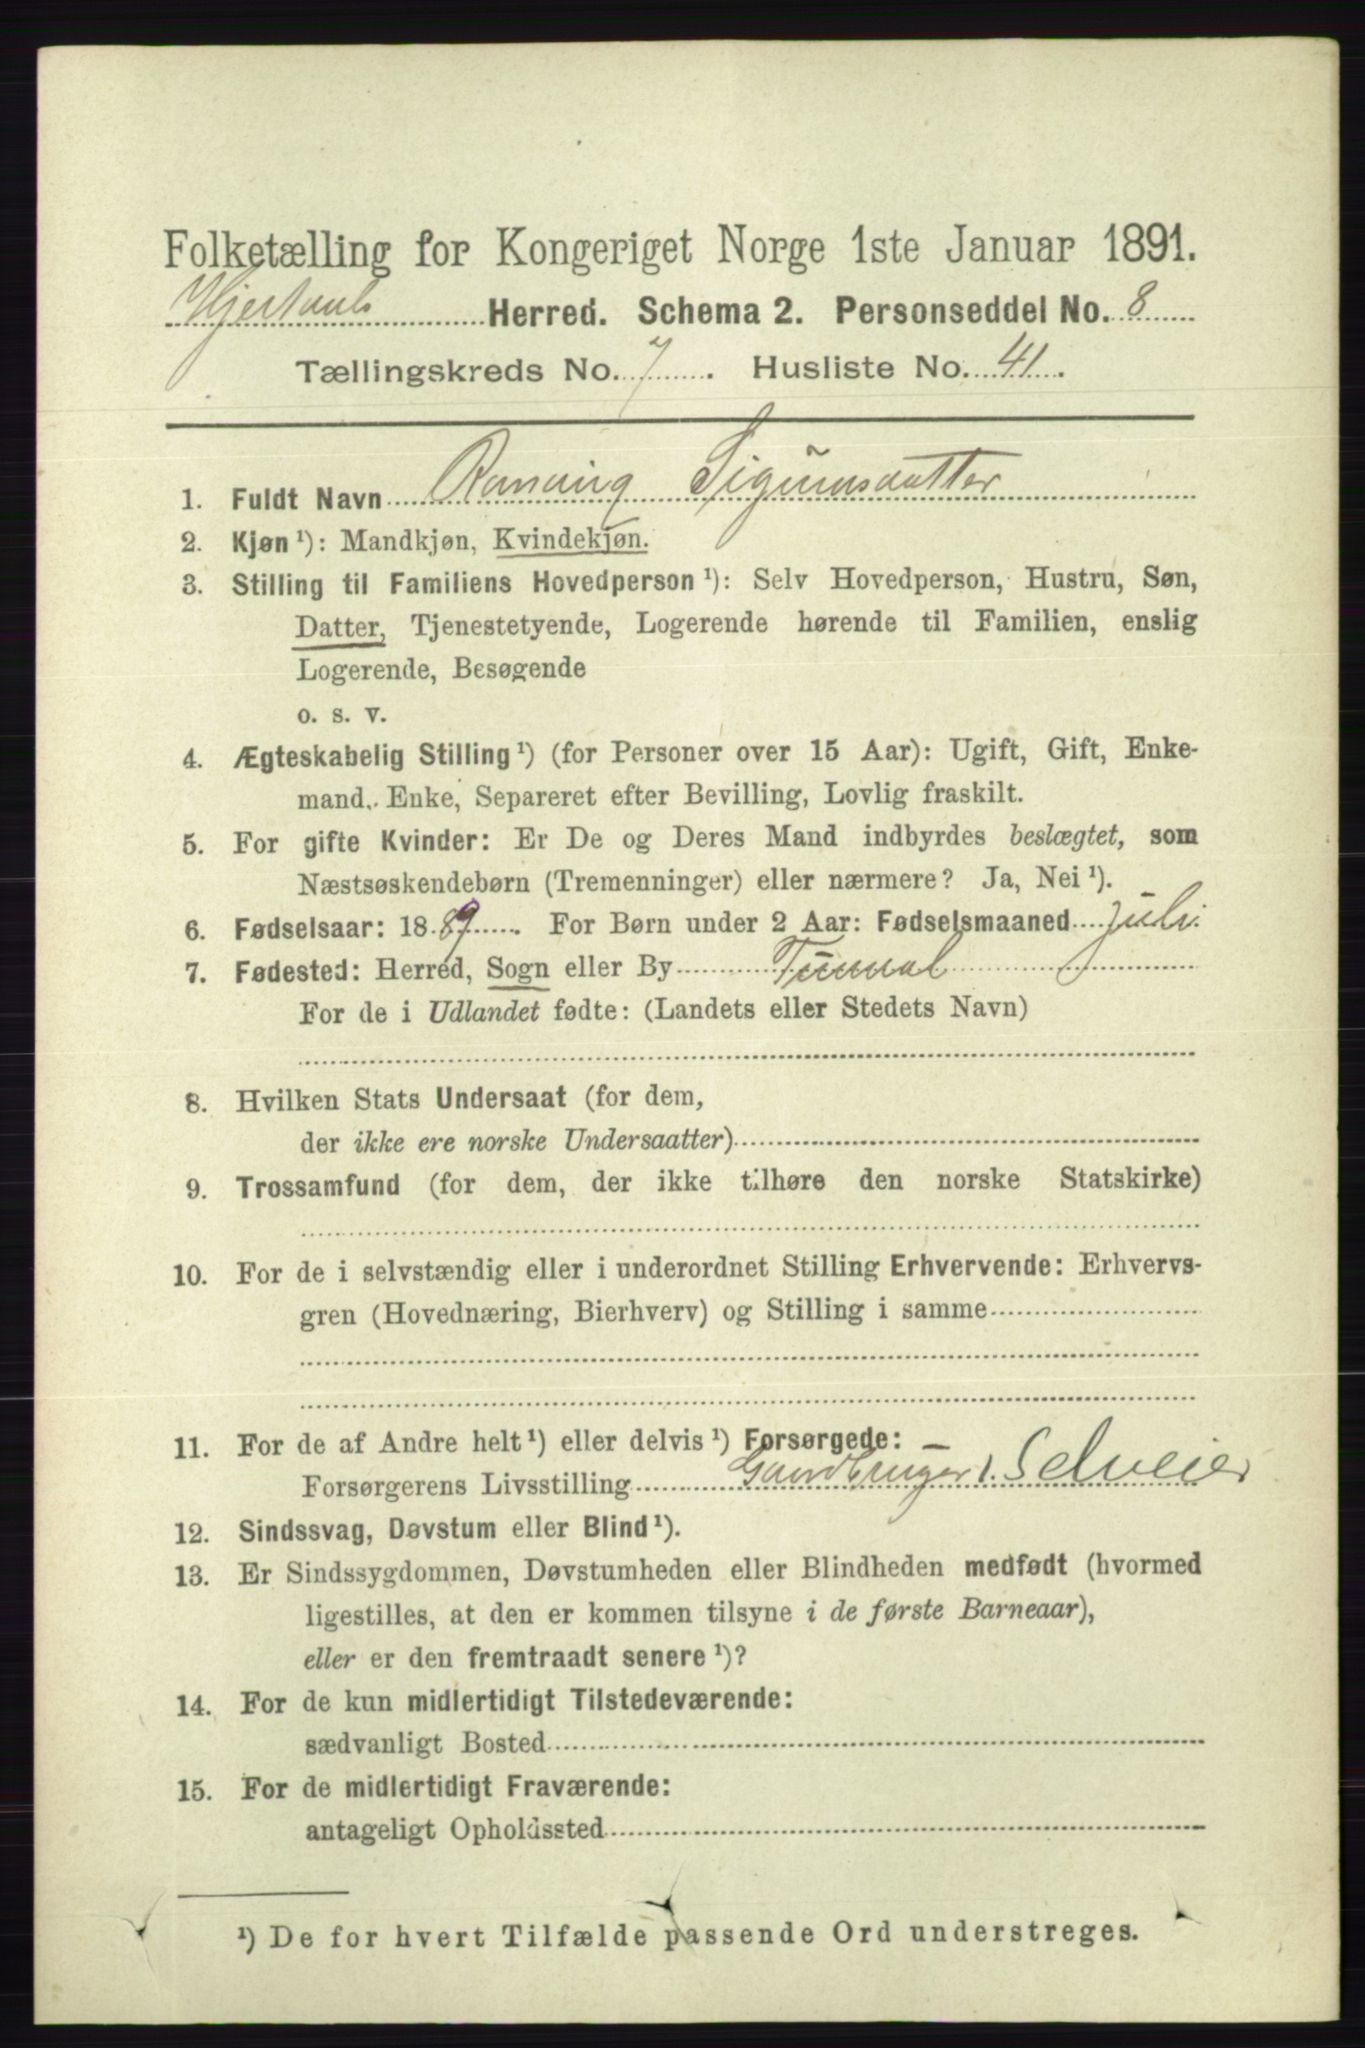 Folketælling for Kongeriget Norge 1ste Januar 1891.
Herred. Schema 2. Personseddel No. 8
Tællingskreds No. 7. Husliste No. 41.
1. Fuldt Navn
2. Kjøn ¹): Mandkjøn, Kvindekjøn.
3. Stilling til Familiens Hovedperson ¹): Selv Hovedperson, Hustru, Søn,
Datter, Tjenestetyende, Logerende hørende til Familien, enslig
Logerende, Besøgende
o. s. v.
4. Ægteskabelig Stilling ¹) (for Personer over 15 Aar): Ugift, Gift, Enke-
mand, Enke, Separeret efter Bevilling, Lovlig fraskilt.
5. For gifte Kvinder: Er De og Deres Mand indbyrdes beslægtet, som
Næstsøskendebørn (Tremenninger) eller nærmere? Ja, Nei ¹).
6. Fødselsaar: 1889. For Børn under 2 Aar: Fødselsmaaned Juli.
7. Fødested: Herred, Sogn eller By
For de i Udlandet fødte: (Landets eller Stedets Navn)
8. Hvilken Stats Undersaat (for dem,
der ikke ere norske Undersaatter)
9. Trossamfund (for dem, der ikke tilhøre den norske Statskirke)
10. For de i selvstændig eller i underordnet Stilling Erhvervende: Erhvervs-
gren (Hovednæring, Bierhverv) og Stilling i samme
11. For de af Andre helt ¹) eller delvis ¹) Forsørgede: —
Forsørgerens Livsstilling Gaardbruger, Selveier
12. Sindssvag, Døvstum eller Blind ¹).
13. Er Sindssygdommen, Døvstumheden eller Blindheden medfødt (hvormed
ligestilles, at den er kommen tilsyne i de første Barneaar),
eller er den fremtraadt senere ¹)?
14. For de kun midlertidigt Tilstedeværende:
sædvanligt Bosted
15. For de midlertidigt Fraværende:
antageligt Opholdssted
¹) De for hvert Tilfælde passende Ord understreges.